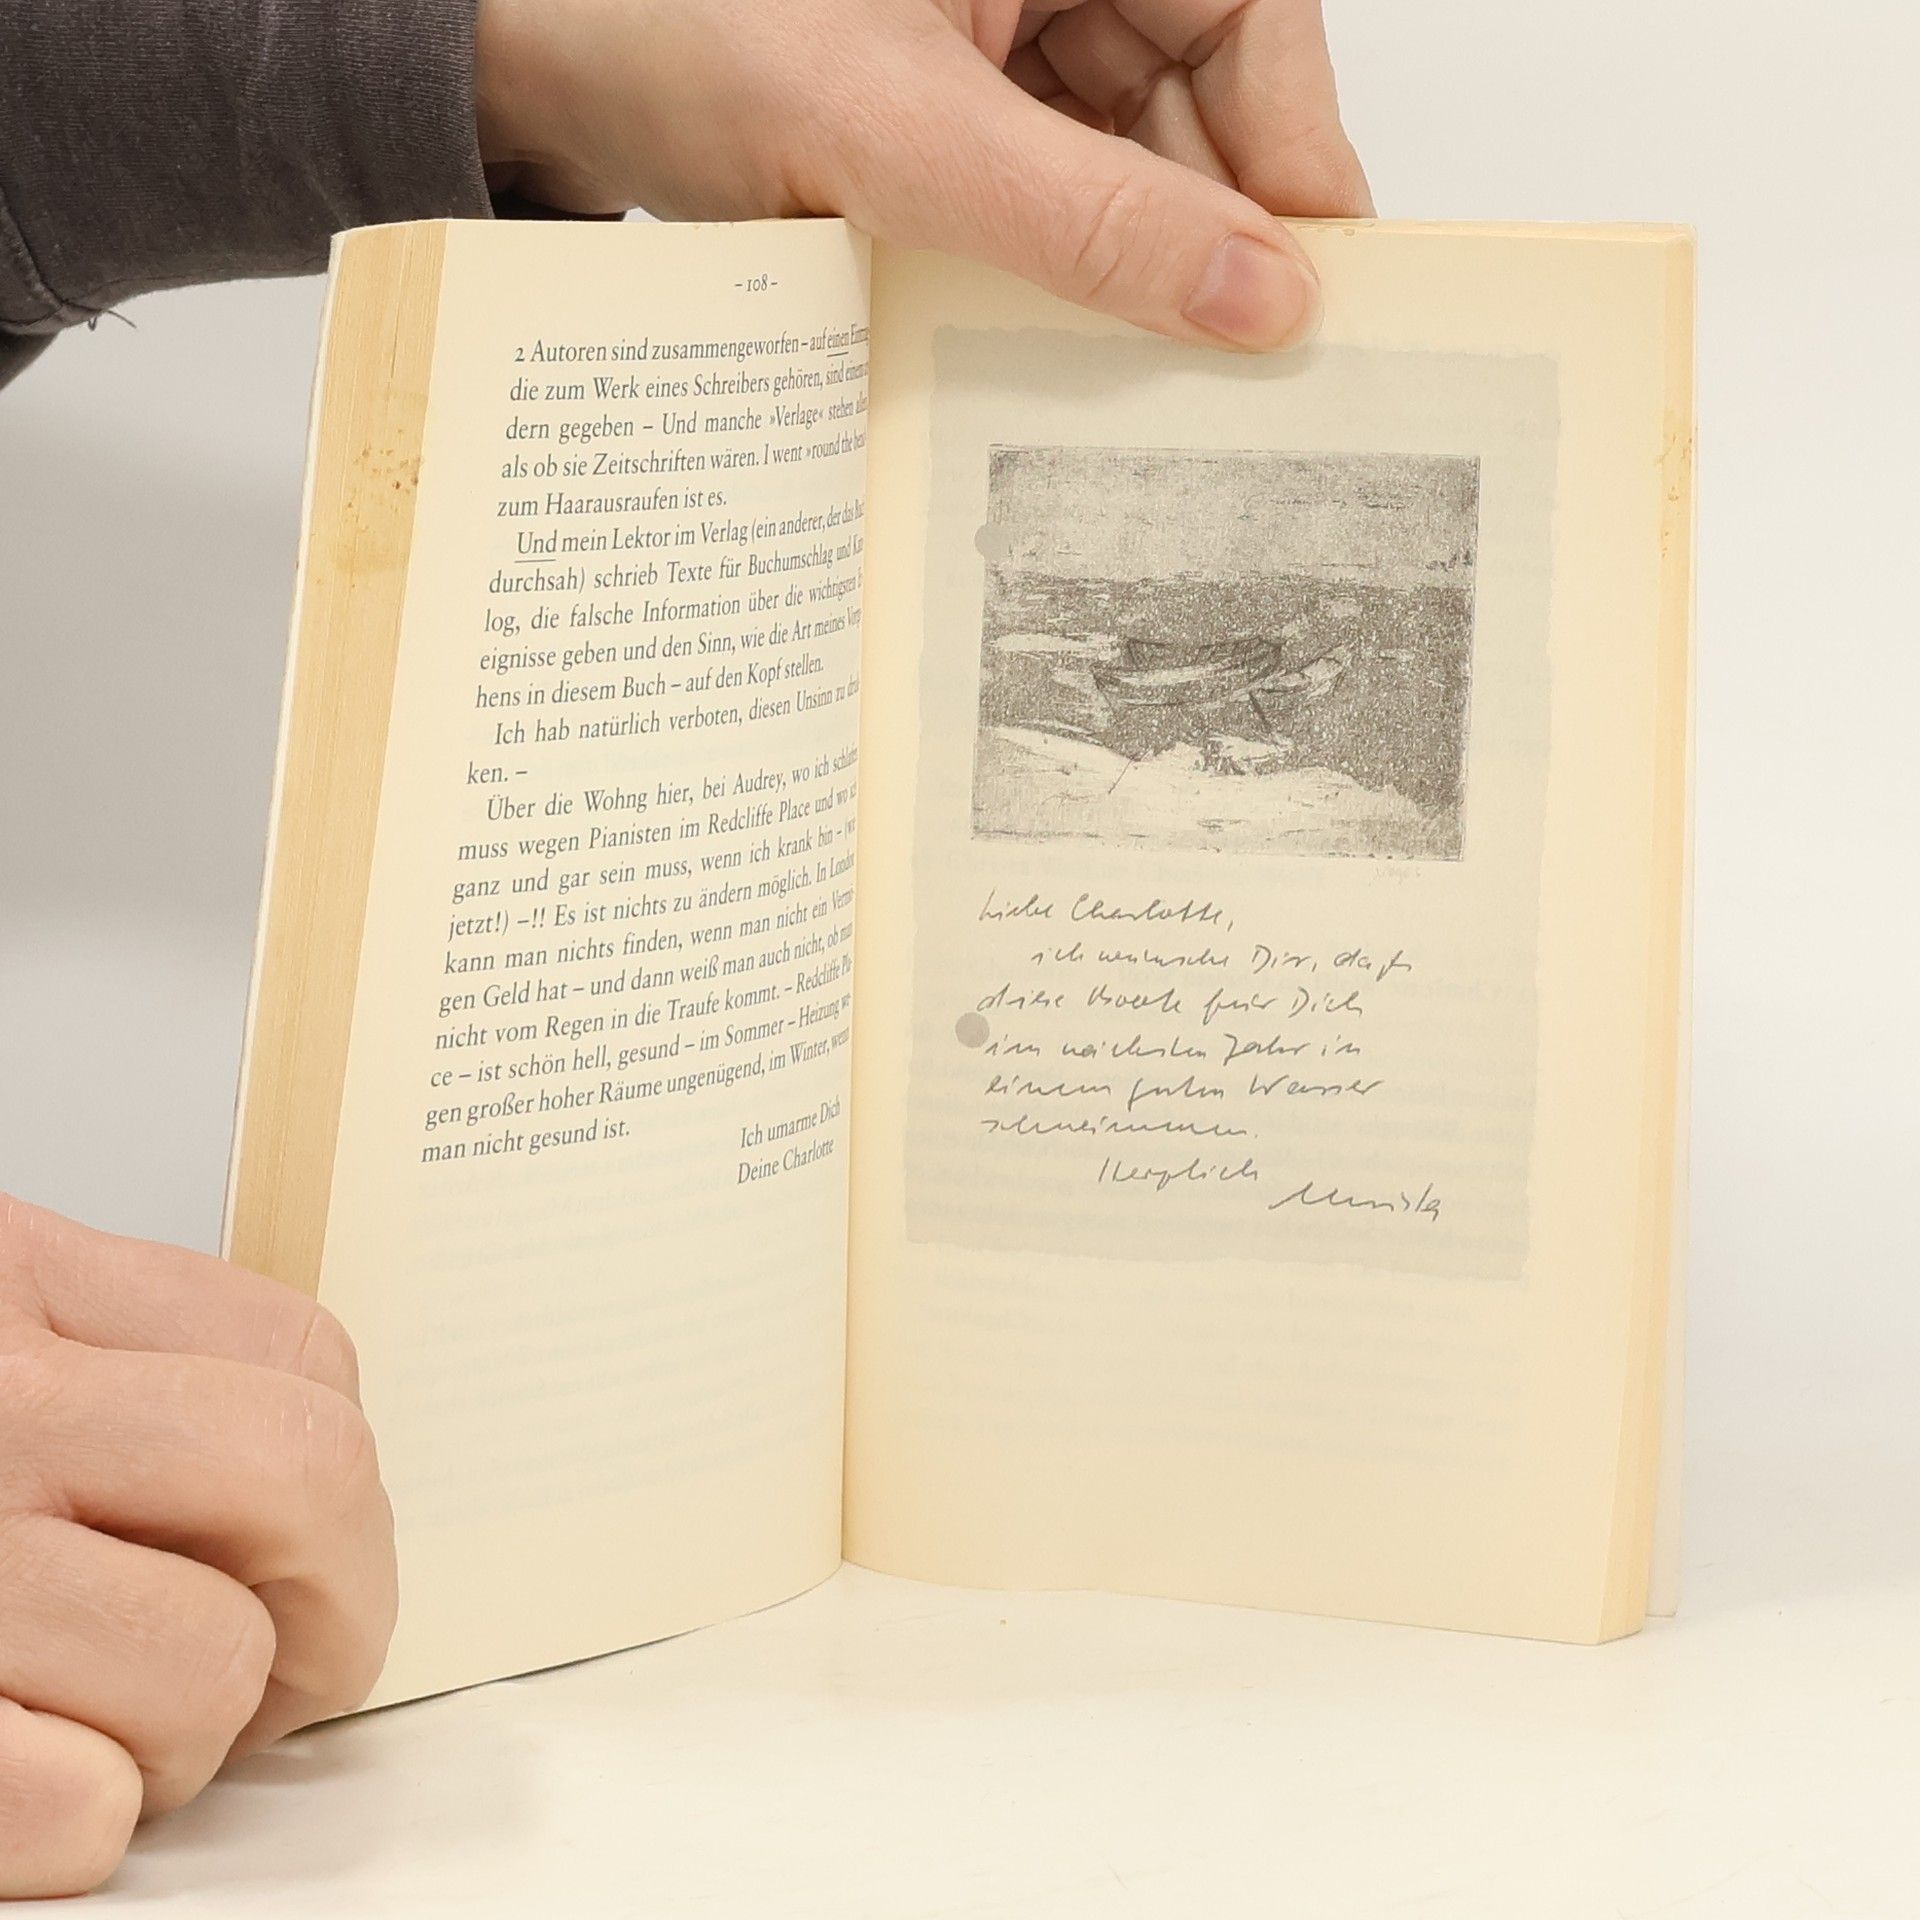 – 108 –
2 Autoren sind zusammengeworfen – auf einen
die zum Werk eines Schreibers gehören, sind einem
dern gegeben – Und manche »Verlage« stehen
als ob sie Zeitschriften wären. I went »round the bend
zum Haarausraufen ist es.
Und mein Lektor im Verlag (ein anderer, der das
durchsah) schrieb Texte für Buchumschlag und
log, die falsche Information über die wichtigsten
eignisse geben und den Sinn, wie die Art meines
hens in diesem Buch – auf den Kopf stellen.
Ich hab natürlich verboten, diesen Unsinn zu
ken. –
Über die Wohng hier, bei Audrey, wo ich
muss wegen Pianisten im Redcliffe Place und wo
ganz und gar sein muss, wenn ich krank bin – (wie
jetzt!) –!! Es ist nichts zu ändern möglich. In London
kann man nichts finden, wenn man nicht ein Vermö-
gen Geld hat – und dann weiß man auch nicht, ob man
nicht vom Regen in die Traufe kommt. – Redcliffe Pla-
ce – ist schön hell, gesund – im Sommer – Heizung we-
gen großer hoher Räume ungenügend, im Winter, wenn
man nicht gesund ist.
Ich umarme Dich
Deine Charlotte
Liebe Charlotte,
ich wünsche Dir, daß
diese Boote für Dich
im nächsten Jahr in
einem guten Wasser
schwimmen.
Herzlich